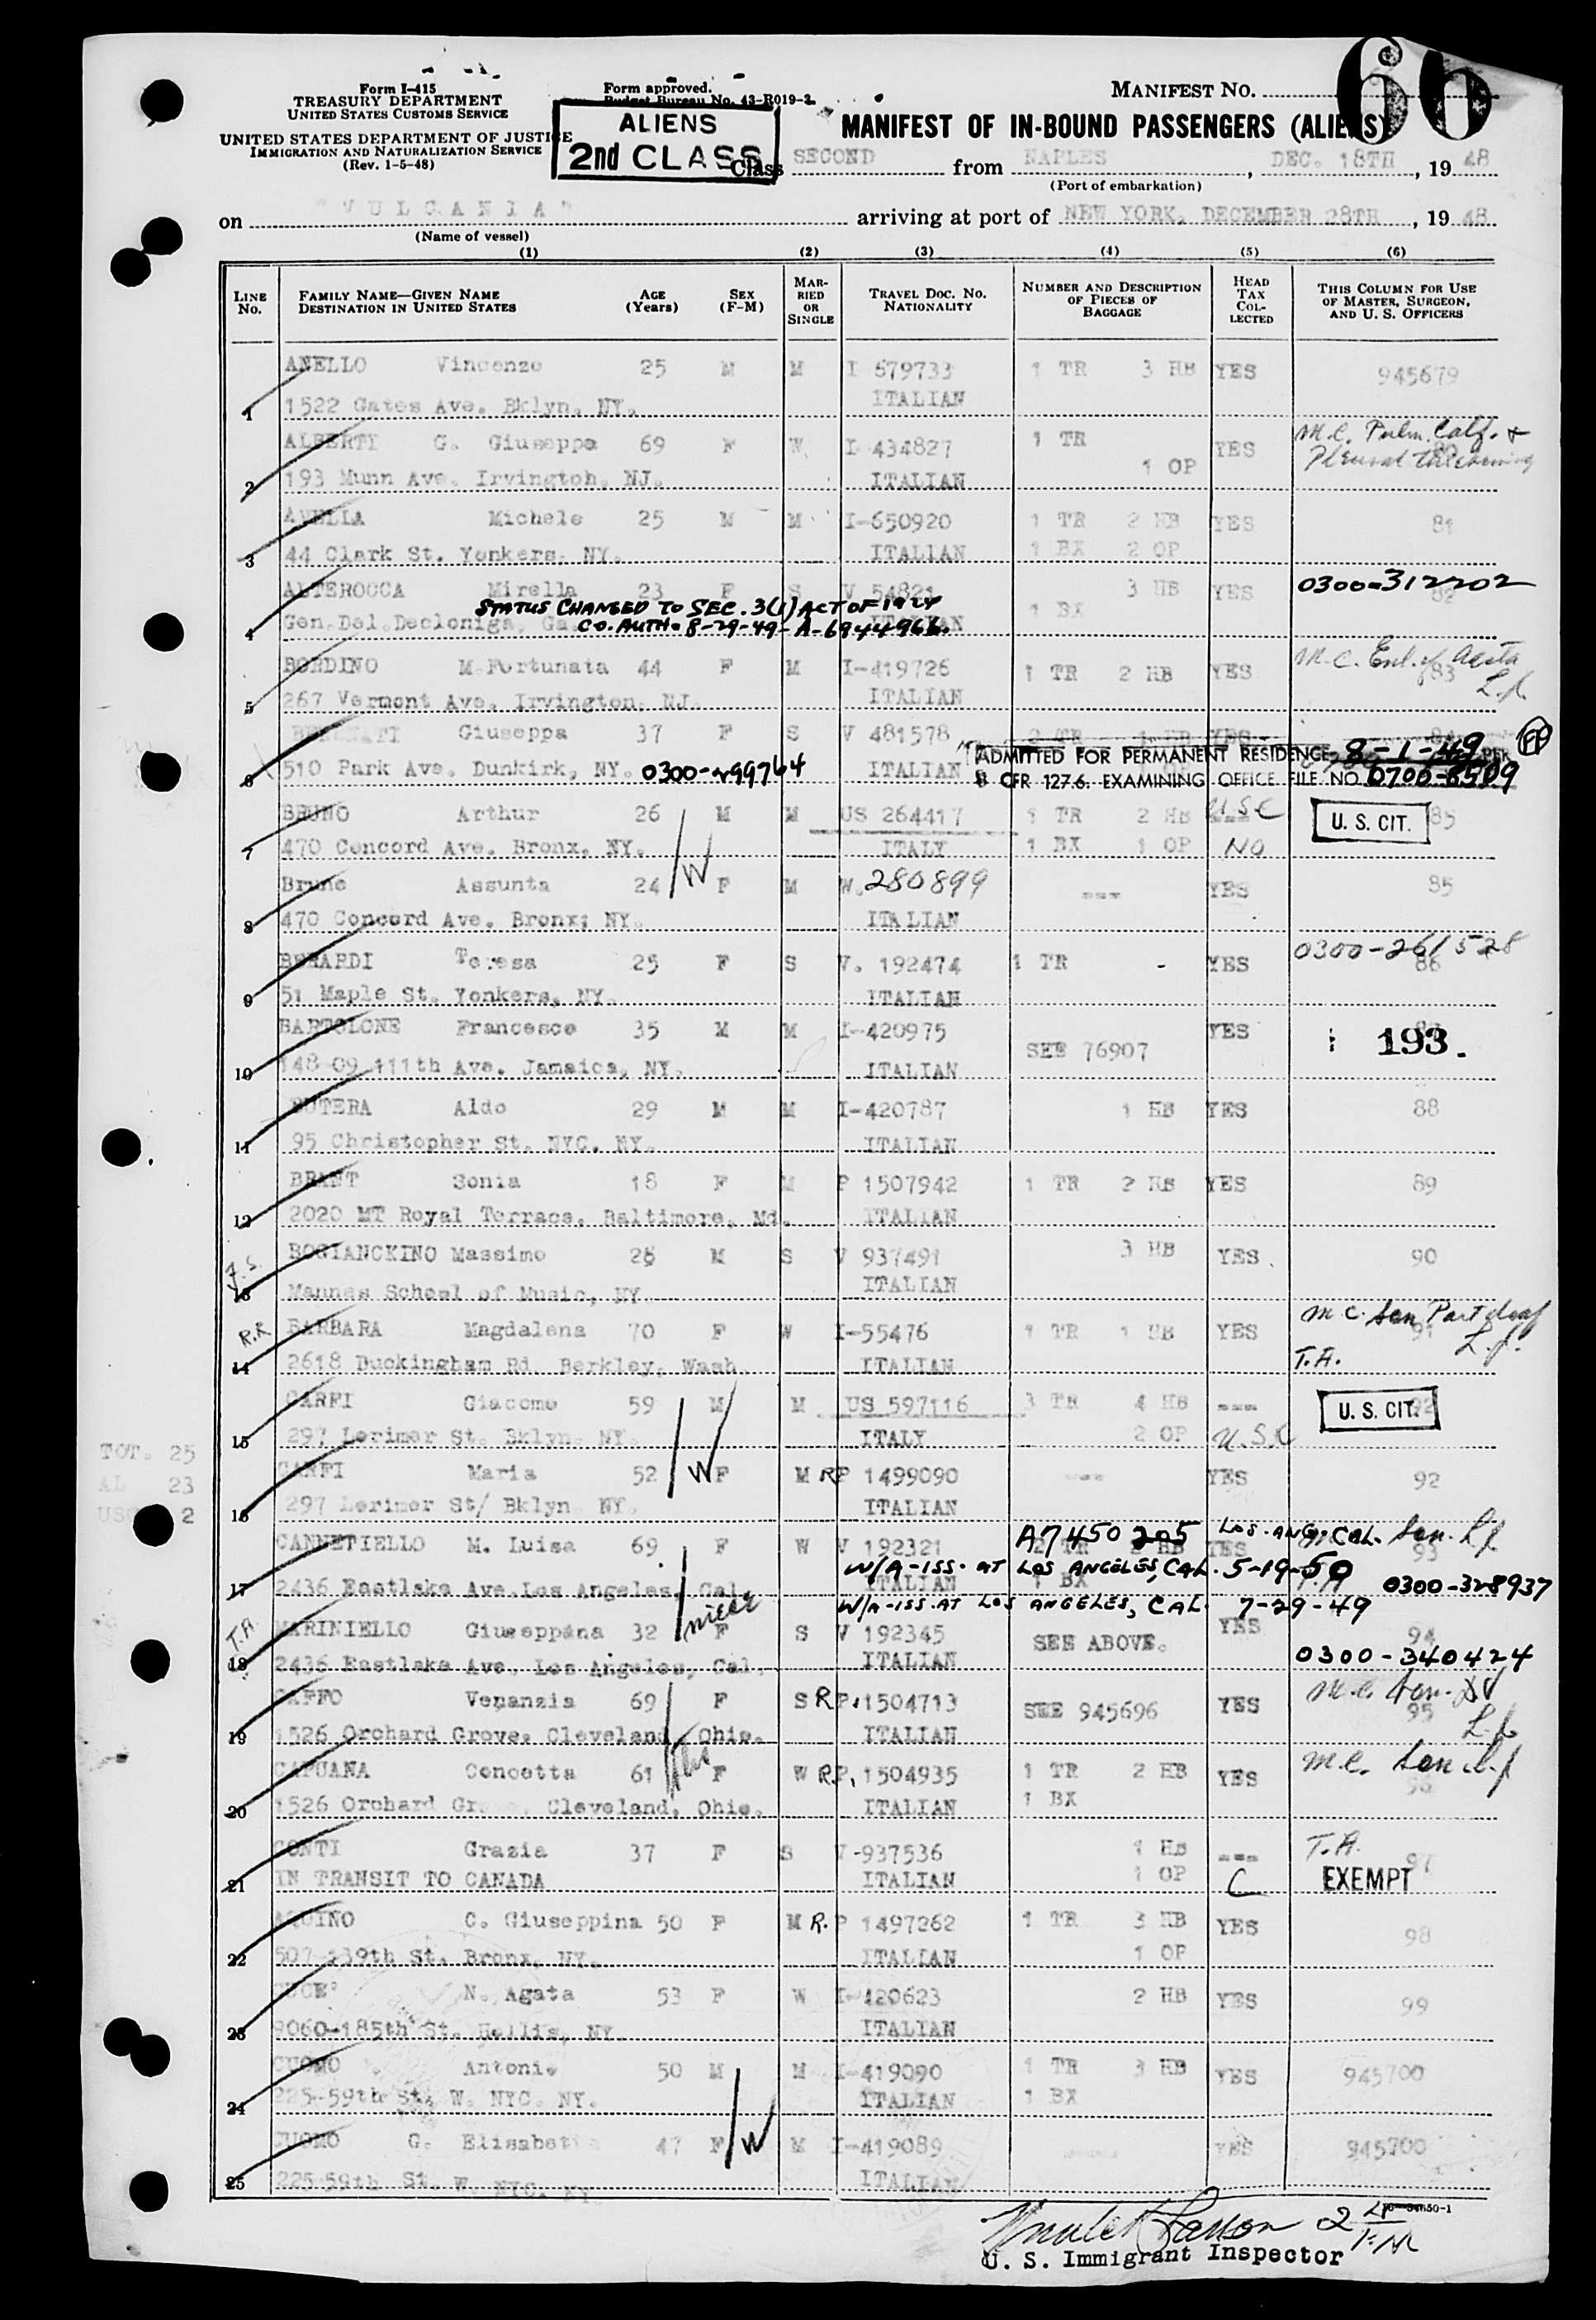 Form I-415
TREASURY DEPARTMENT
UNITED STATES CUSTOMS SERVICE
UNITED STATES DEPARTMENT OF JUSTICE
IMMIGRATION AND NATURALIZATION SERVICE
(Rev. 1-5-48)
Form approved.
Budget Bureau No. 43-R019-2.
ALIENS
2nd CLASS
MANIFEST NO. 66
MANIFEST OF IN-BOUND PASSENGERS (ALIENS)
Class SECOND from NAPLES, DEC. 18TH, 19 48
(Port of embarkation)
on "VULCANIA" arriving at port of NEW YORK, DECEMBER 28TH, 19 48
(Name of vessel)
(1) (2) (3) (4) (5) (6)
LINE NO. FAMILY NAME—GIVEN NAME DESTINATION IN UNITED STATES AGE (Years) SEX (F-M) MARRIED OR SINGLE TRAVEL DOC. NO. NATIONALITY NUMBER AND DESCRIPTION OF PIECES OF BAGGAGE HEAD TAX COLLECTED THIS COLUMN FOR USE OF MASTER, SURGEON, AND U. S. OFFICERS
ANELLO Vincenzo 25 M M I 679733 1 TR 3 HB YES 945679
1 1522 Gates Ave. Bklyn. NY. ITALIAN
ALBERTI G. Giuseppa 69 F W I-434827 1 TR YES M.C. Pulm. Calf. +
1 OP Pleural thickening
2 193 Munn Ave. Irvington. NJ. ITALIAN
AVELLA Michele 25 M M I-650920 1 TR 2 HB YES 81
3 44 Clark St. Yonkers. NY. ITALIAN 1 BX 2 OP
ALTEROCCA Mirella 23 F S V 54821 3 HB YES 0300-312202 82
STATUS CHANGED TO SEC. 3(1) ACT OF 1924 1 BX
4 Gen. Del. Decloniga, Ga. CO. AUTH. 8-29-49-A-6944966.
BORDINO M. Fortunata 44 F M I-419726 1 TR 2 HB YES M.C. Enl. of Aorta 83
5 267 Vermont Ave. Irvington. NJ. ITALIAN
Giuseppa 37 F S V 481578 2 TR 1 HB YES 84
ADMITTED FOR PERMANENT RESIDENCE 8-1-49 PER
6 510 Park Ave. Dunkirk, NY. 0300-299764 ITALIAN 8 CFR 127.6. EXAMINING OFFICE FILE NO. 0700-6509
BRUNO Arthur 26 M M US 264417 1 TR 2 HB U.S.C U. S. CIT. 85
7 470 Concord Ave. Bronx. NY. W ITALY 1 BX 1 OP NO
Bruno Assunta 24 F M W. 280899 --- YES 85
8 470 Concord Ave. Bronx; NY. ITALIAN
BERARDI Teresa 25 F S V. 192474 1 TR - YES 0300-261528 86
9 51 Maple St. Yonkers, NY. ITALIAN
BARTOLONE Francesco 35 M M I-420975 SEE 76907 YES 193.
10 148-09 111th Ave. Jamaica, NY. ITALIAN
BUTERA Aldo 29 M M I-420787 1 HB YES 88
11 95 Christopher St. NYC. NY. ITALIAN
BRANT Sonia 18 F M P 1507942 1 TR 2 HB YES 89
12 2020 MT Royal Terrace, Baltimore, Md. ITALIAN
BOGIANCKINO Massimo 26 M S V 937491 3 HB YES 90
13 Mannes School of Music, NY ITALIAN
R.R BARBARA Magdalena 70 F W I-55476 1 TR 1 HB YES M.C. Sen Part deaf 91
14 2618 Buckingham Rd. Berkley, Wash. ITALIAN T.A.
CARFI Giacomo 59 M M US 597116 3 TR 4 HB --- U. S. CIT. 92
15 297 Lorimer St. Bklyn. NY. W ITALY 2 OP U.S.C
CARFI Maria 52 F M RP 1499090 --- YES 92
16 297 Lorimer St/ Bklyn NY. ITALIAN
TOT. 25
AL 23
USC 2
CANNETIELLO M. Luisa 69 F W V 192321 A7450205 2 TR 2 HB YES LOS. ANG. CAL. Sen. 93
W/A-ISS. AT LOS ANGELES, CAL. 5-19-50
17 2436 Eastlake Ave. Los Angeles, Cal. ITALIAN 1 BX 0300-328937
W/A-ISS. AT LOS ANGELES, CAL. 7-29-49
T.A. MARINIELLO Giuseppina 32 niece F S V 192345 SEE ABOVE. YES 94
18 2436 Eastlake Ave. Los Angeles, Cal. ITALIAN 0300-340424
CAFFO Venanzia 69 F S R P. 1504713 SEE 945696 YES M.C. Sen. 95
19 1526 Orchard Grove. Cleveland, Ohio. ITALIAN
CAPUANA Concetta 61 F W R.P. 1504935 1 TR 2 HB YES M.C. Sen
20 1526 Orchard Cleveland, Ohio. ITALIAN 1 BX
CONTI Grazia 37 F S V-937536 1 HB --- T.A. 97
21 IN TRANSIT TO CANADA ITALIAN 1 OP C EXEMPT
AQUINO C. Giuseppina 50 F M R. P 1497262 1 TR 3 HB YES 98
22 507-139th St. Bronx, NY. ITALIAN 1 OP
CUCE' N. Agata 53 F W I-420623 2 HB YES 99
23 9060-185th St. Hollis, NY. ITALIAN
CUOMO Antonio 50 M M I-419090 1 TR 3 HB YES 945700
24 225-59th St. W. NYC. NY. ITALIAN 1 BX
CUOMO G. Elisabetta 47 F W M I-419089 YES 945700
25 225-59th St. W. NYC. NY ITALIAN
16-54650-1
U. S. Immigrant Inspector